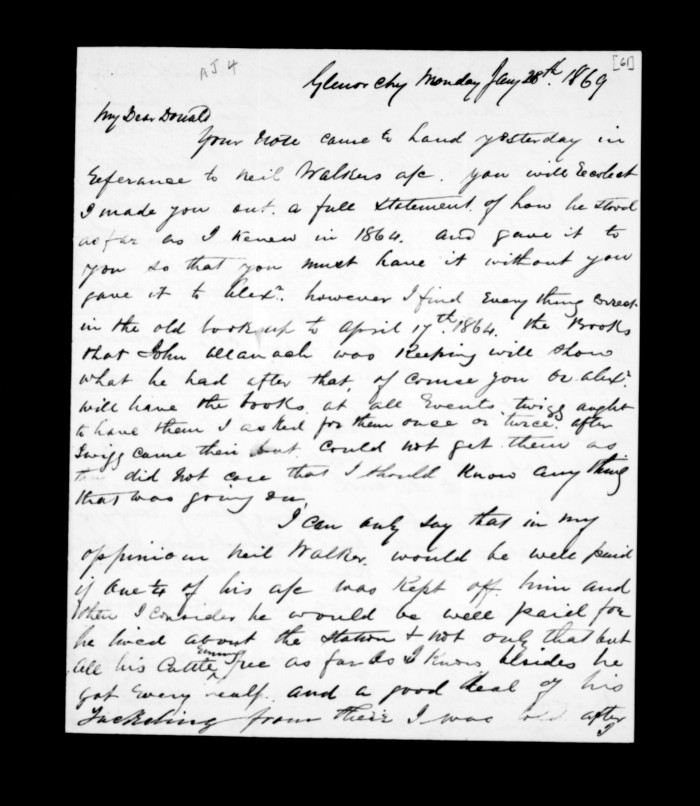 [61]
Glenorchy Monday Jany 28th. 1869
My Dear Donald
Your Note came to hand yesterday in
Referance to Neil Walkers a/c. you will Recolect
I made you out. a full Statement. of how he stood
as far as I Kenew in 1864. and gave it to
you so that you must have it without you
gave it to Alexr. however I find Every thing correct
in the old book up to April 17th. 1864. the Books
that John Allanach was Keeping will show
what he had after that. of course you or Alexr.
will have the books. at all Events. twigg aught
to have them I asked for them once or twice. after
Twigg came their but could not get them as
did not care that I should Know any thing
that was going on.
I can only say that in my
oppinion Neil Walker. would be well paid
if one of his a/c was Kept off him and
then I consider he would be well paid for
he lived about the Station & not only that but
all his Cattle running free as far as I Know besides he
got Every and a good deal of his
from their I was told after
I